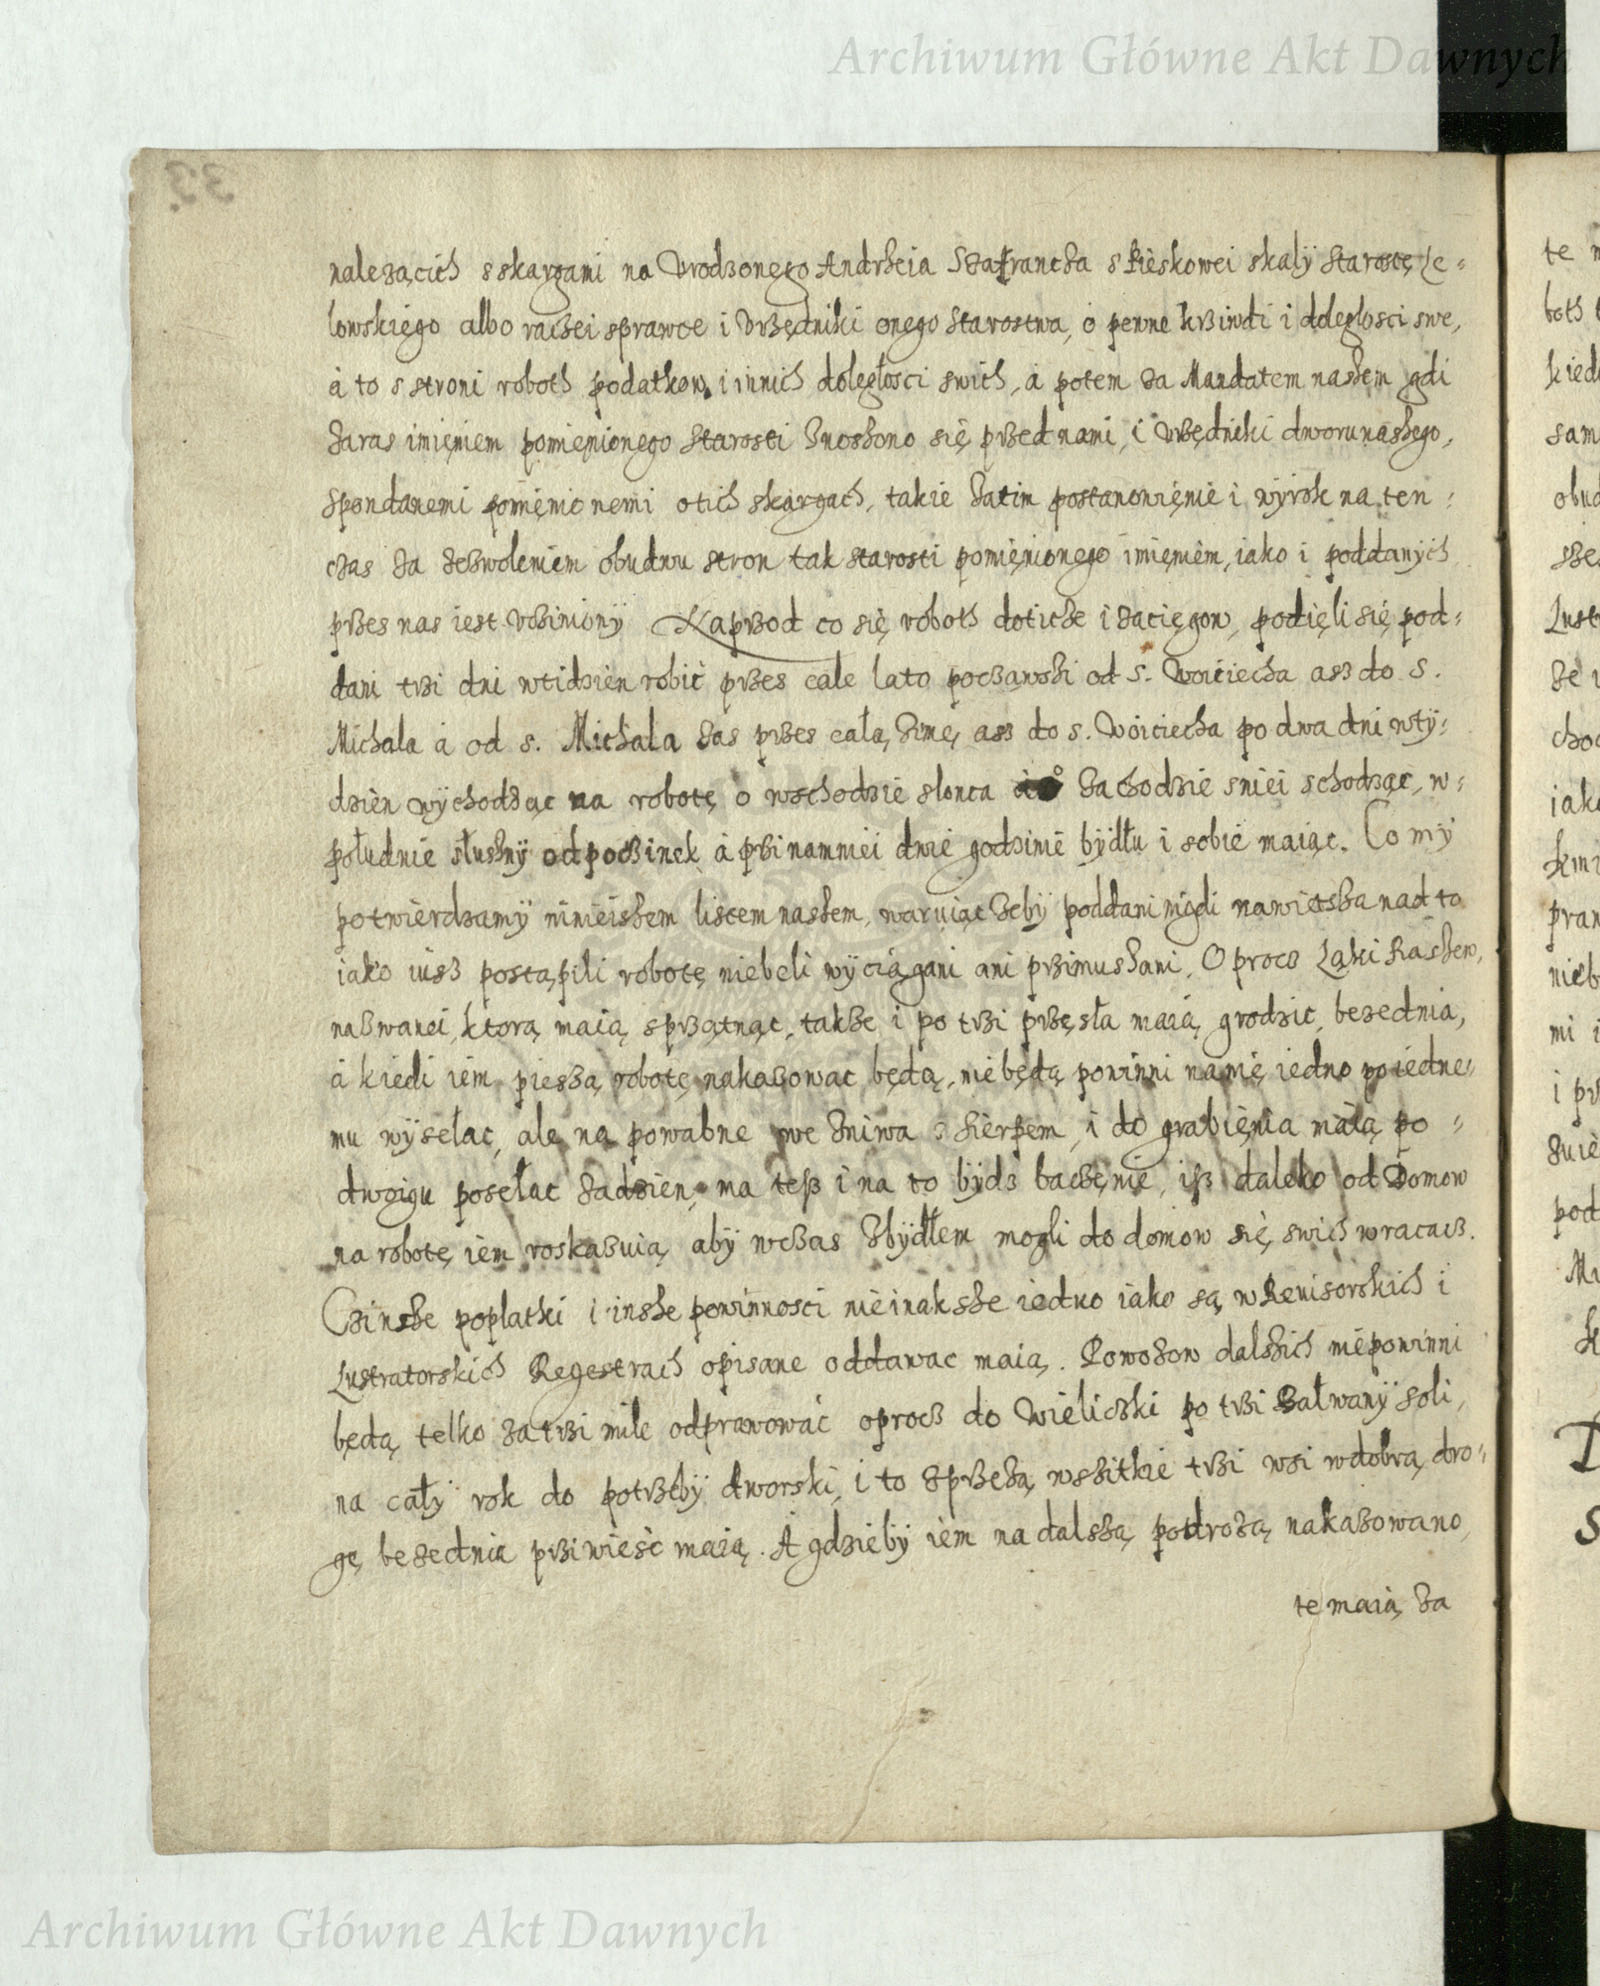 Archiwum Główne Akt Dawnych
33.
należącich s skargami na Vrodzonego Andrzeia Szafrancza s Pieskowei skały starostę Le=
lowskiego albo raczei sprawce i Vrzędniki onego starostwa, o pewne krziwdi i dolęglosci swe,
à to s stroni roboth podatkow, i innich dolęgłosci swich, à potem za Mandatem naszem gdi
zaras imięniem pomięnionego starosti znoszono się przed nami, i Vrzędniki dworu naszego,
spoddanemi pomięnionemi o tich skargach, takie zatim postanowięnie i wÿrok na ten=
czas za zezwoleniem obudwu stron tak starosti pomięnionego imięniem, iako i poddanÿch
przes nas iest vczinionÿ Naprzod co się roboth doticze i zacięgow, podięli się pod=
dani trzi dni wtidzień robić przes cale lato poczawszi od S. Woiciecha asz do S.
Michala à od s. Michala zas przes całą zimę, asz do s. Woiciecha po dwa dni wtÿ=
dzien wÿchodząc na robotę o wschodzie slonca à o zachodzie sniei schodząc, w=
południe słusznÿ odpoczinek à przinamniei dwie godzinie bÿdłu i sobie maiąc. Co mÿ
potwierdzamÿ ninieiszem listem naszem, waruiąc żebÿ poddani nigdi nawietsza nad to
iako iusz postąpili robotę niebeli wÿciągani ani przimuszani. Oprocz Łąki Raszew,
nazwanei, ktorą maią sprzątnąc, także i po trzi przęsła maią grodzic, bezednia,
à kiedi iem pieszą robotę nakazowac będą, nie będą powinni na nię iedno po iedne=
mu wÿsełac, ale na powabne we żniwa s sierpem, i do grabięnia maią po=
dwoigu posełac zadzien, ma tesz i na to bÿdz baczęnie, isz daleko od Domow
na robotę iem roskazuią, abÿ wczas z bÿdłem mogli do domow się swich wracacz.
Czinsze poplatki i insze powinnosci nie inaksze iedno iako są w Reuisorskich i
Lustratorskich Regestrach opisane oddawac maią. Powozow dalszich niepowinni
będą telko za trzi mile odprawować oprocz do Wieliczki po trzi Bałwanÿ soli,
na całÿ rok do potrzebÿ dworski, i to sprzeżą wszitkie trzi wsi w dobrą dro=
gę bezednia prziwiesć maią. A gdziebÿ iem na dalszą podrożą nakazowano,
te maią za
Archiwum Główne Akt Dawnych